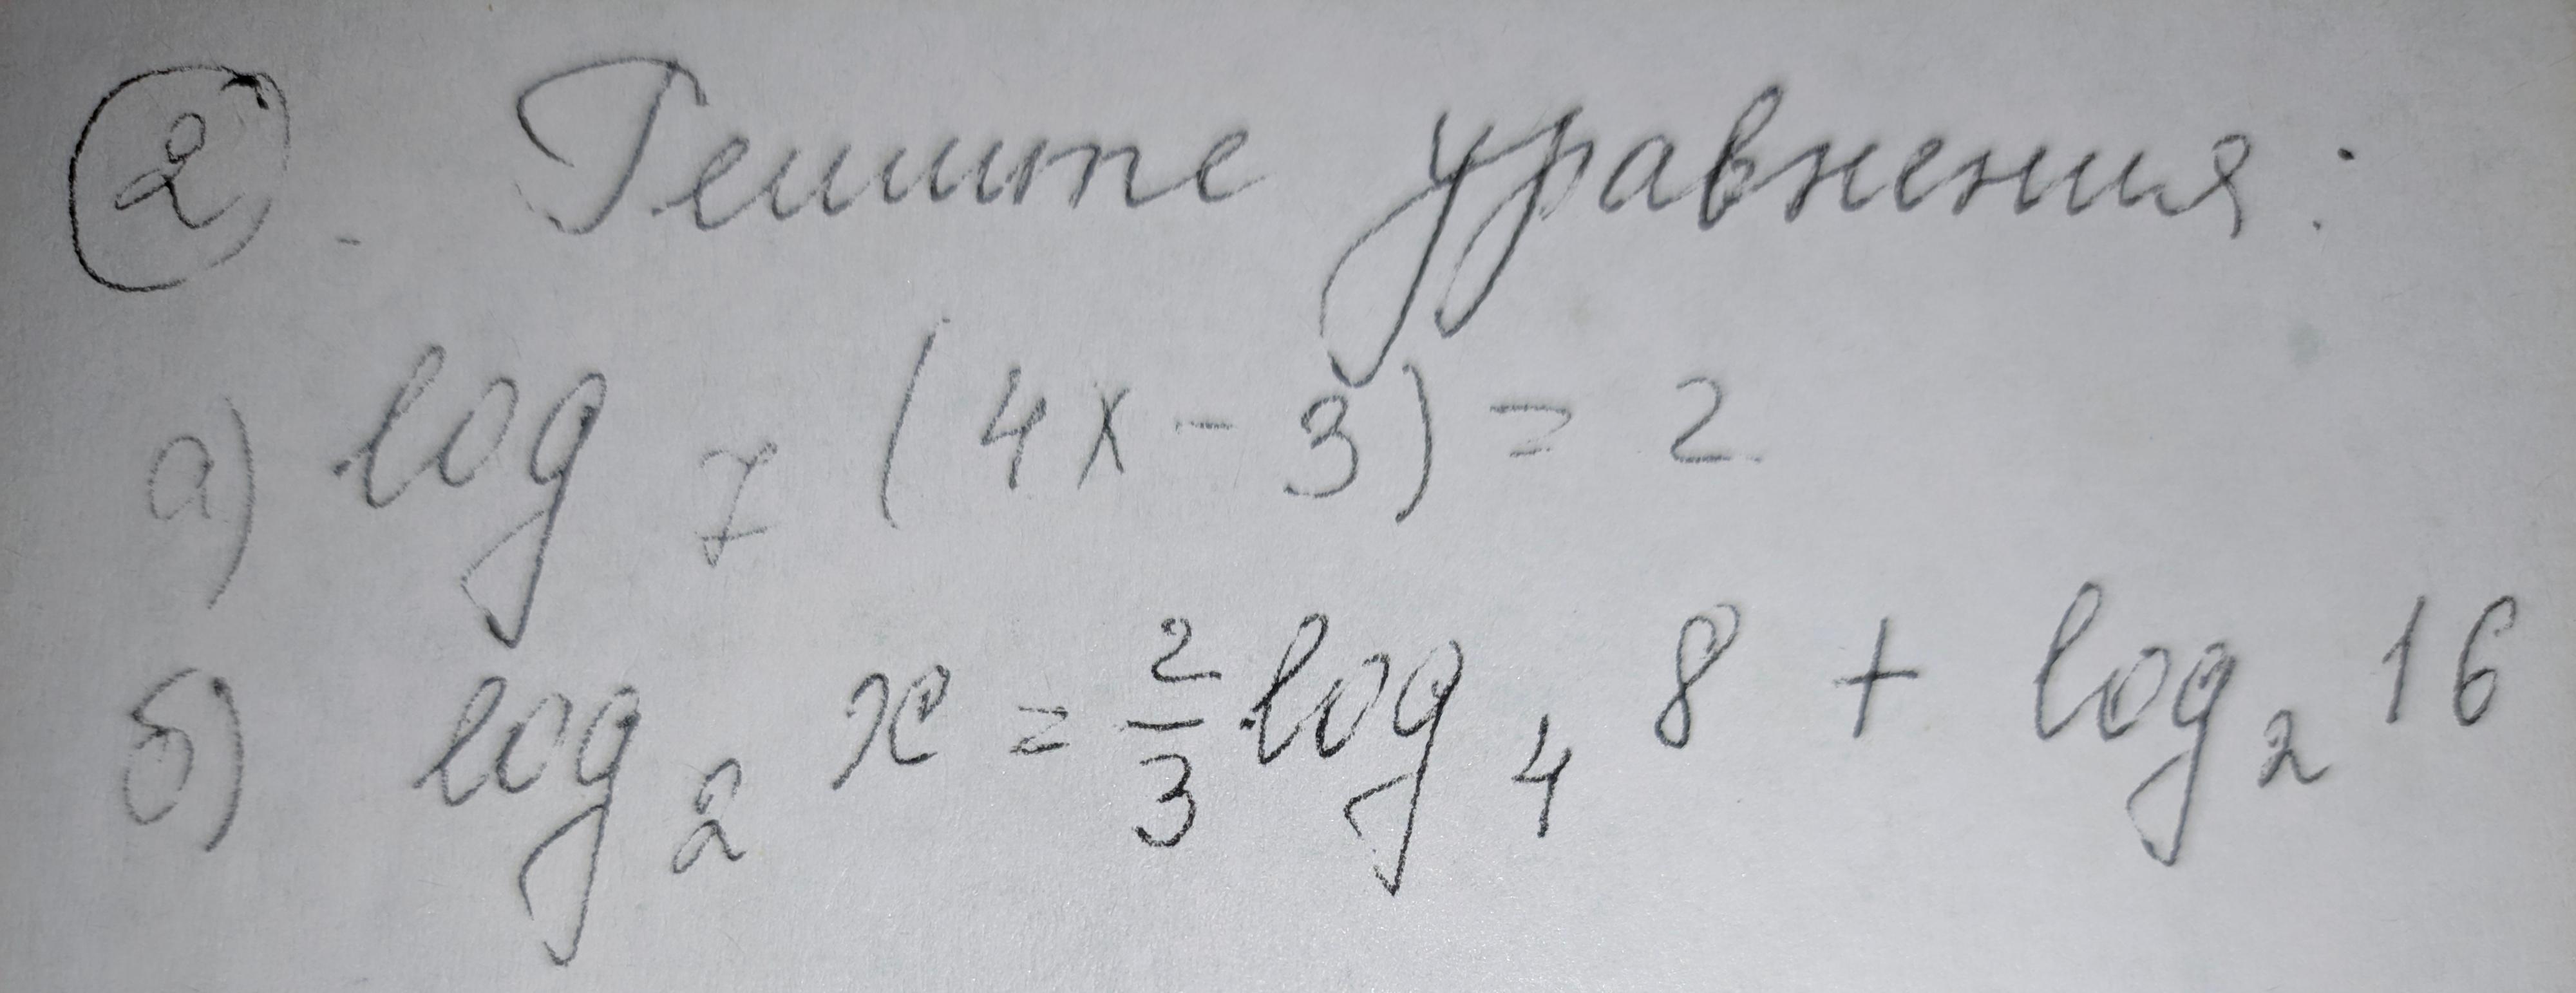 2. Решите уравнения:
а) log₇ (4x - 3) = 2
б) log₂ x = 2/3 log₄ 8 + log₂ 16